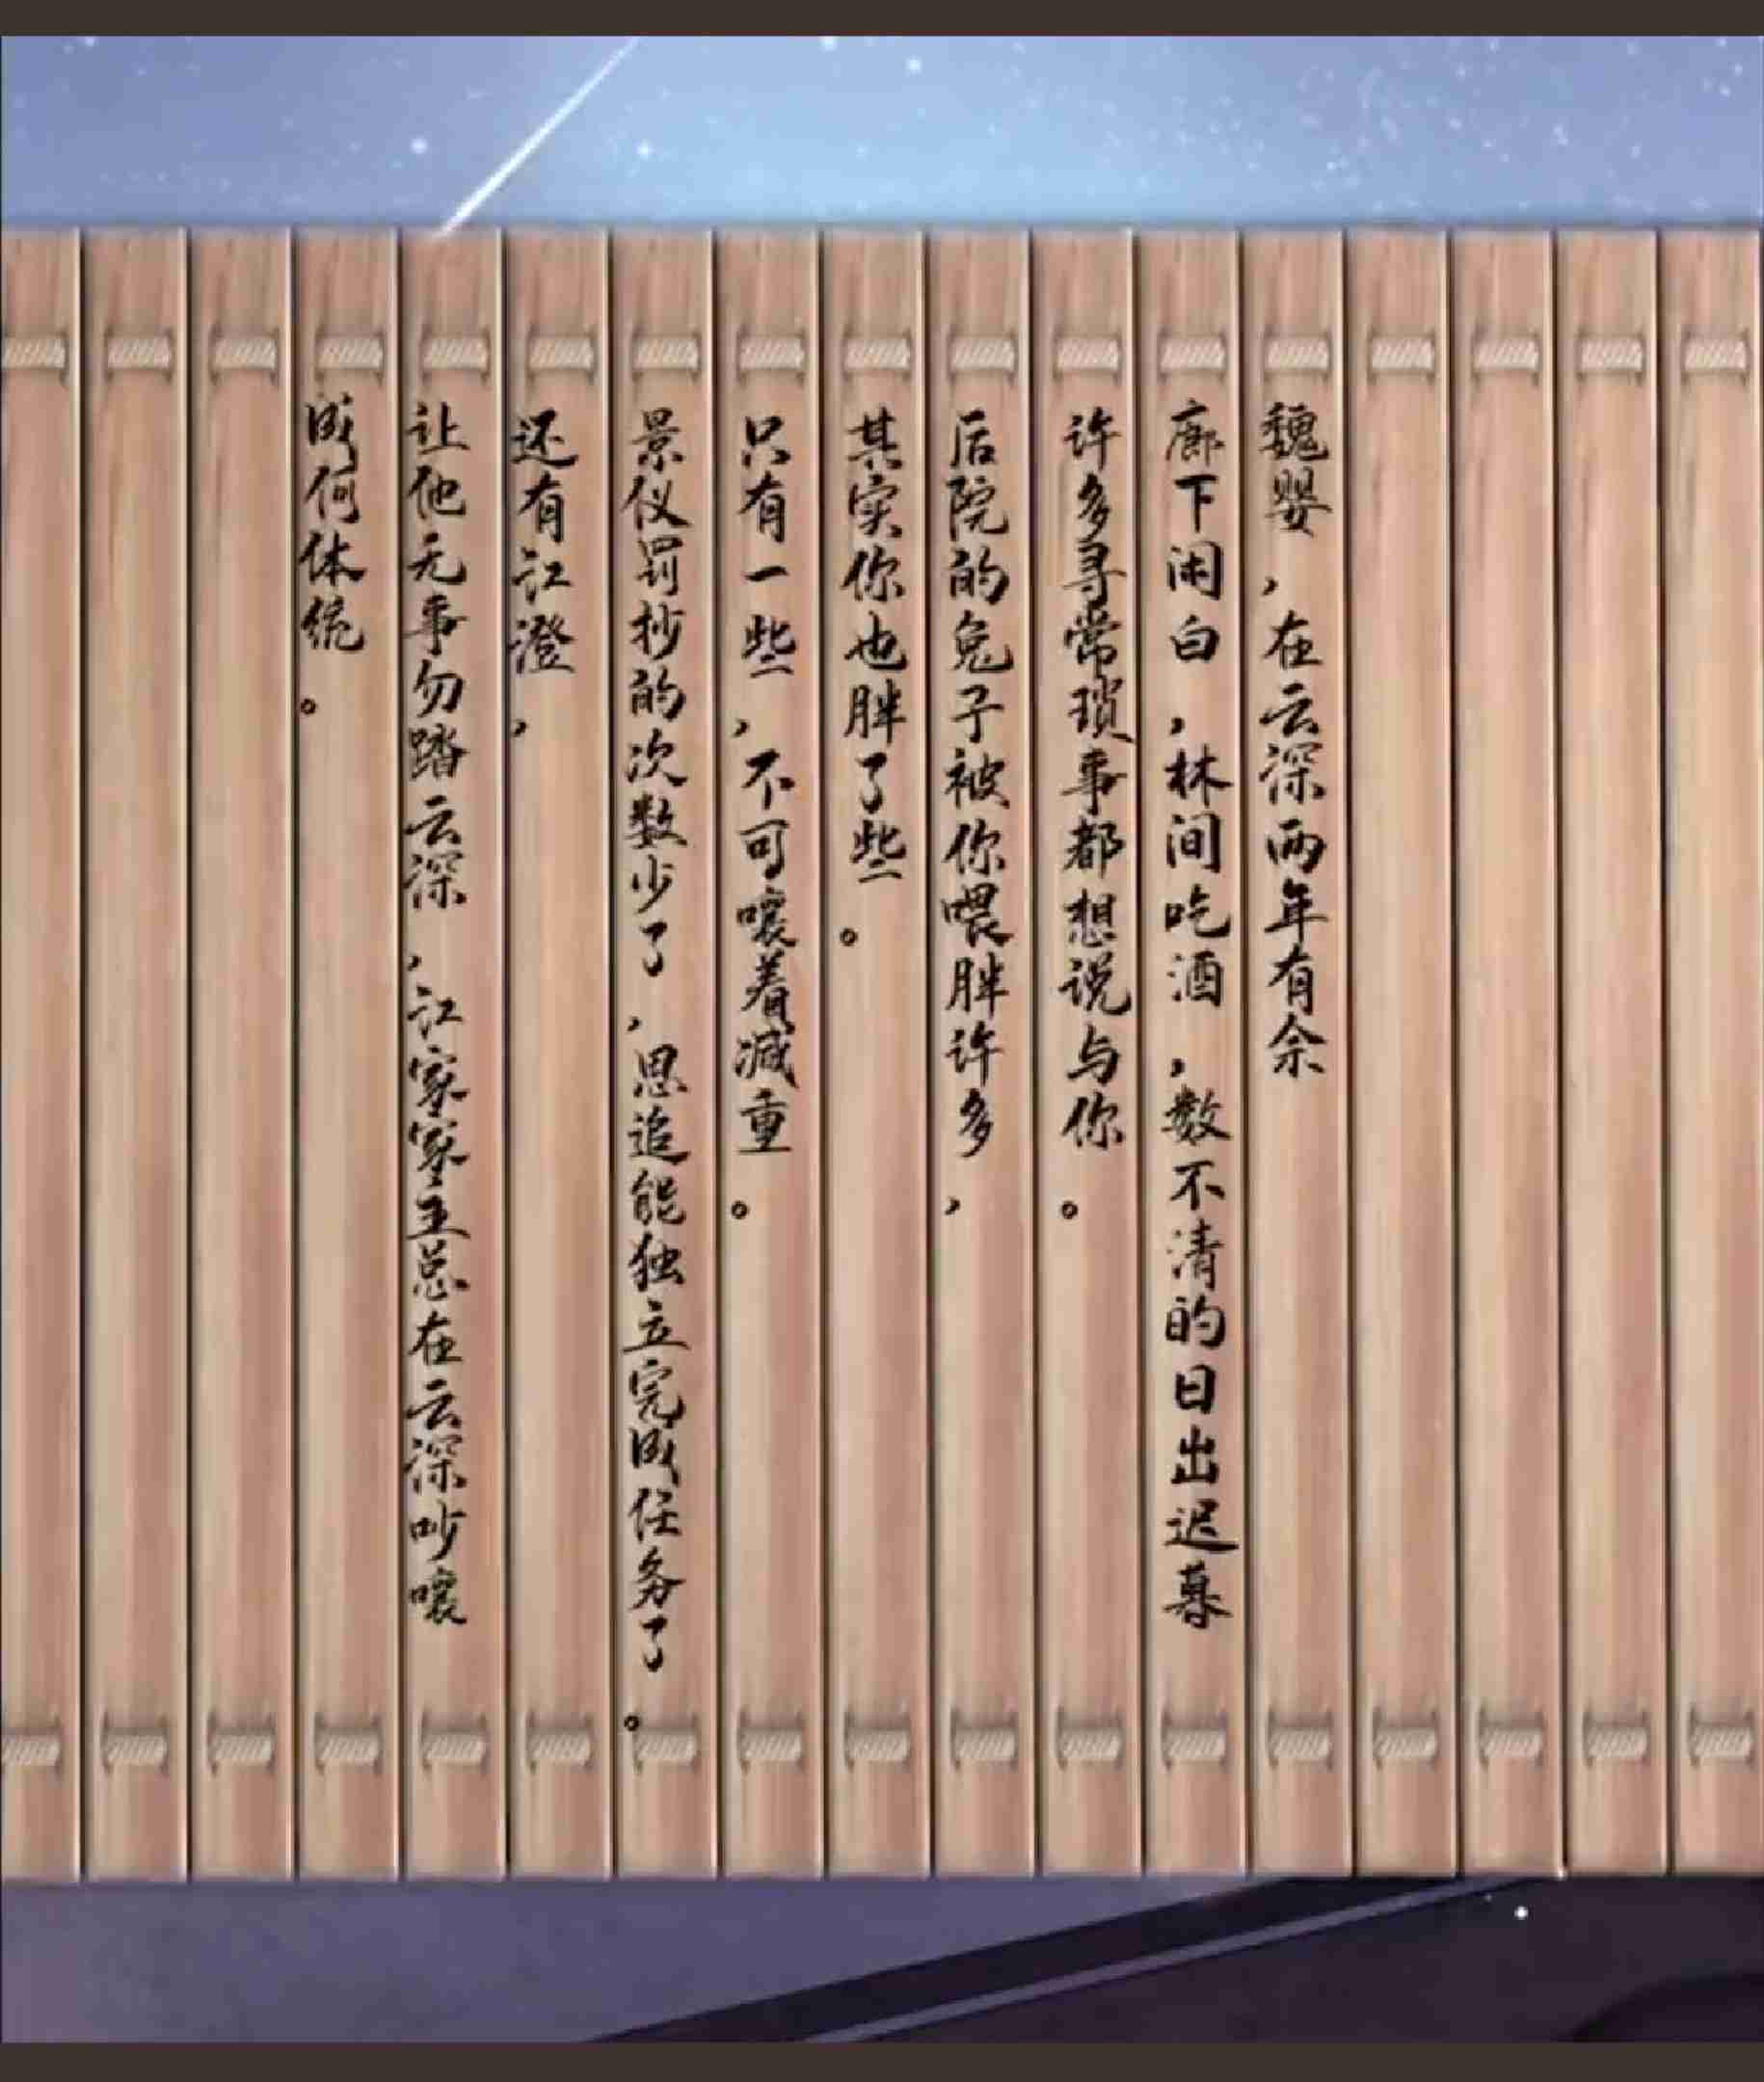 魏婴，在云深两年有余
廊下闲白，林间吃酒，数不清的日出迟暮
许多寻常琐事都想说与你。
后院的兔子被你喂胖许多，
其实你也胖了些。
只有一些，不可嚷着减重。
景仪罚抄的次数少了，思追能独立完成任务了。
还有江澄，
让他无事勿踏云深，江家家主总在云深吵嚷
成何体统。